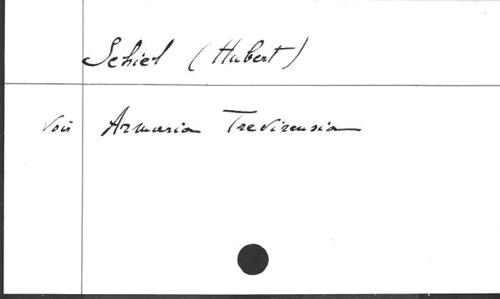 Schiel (Hubert)
Voir Armaria Trevirensia